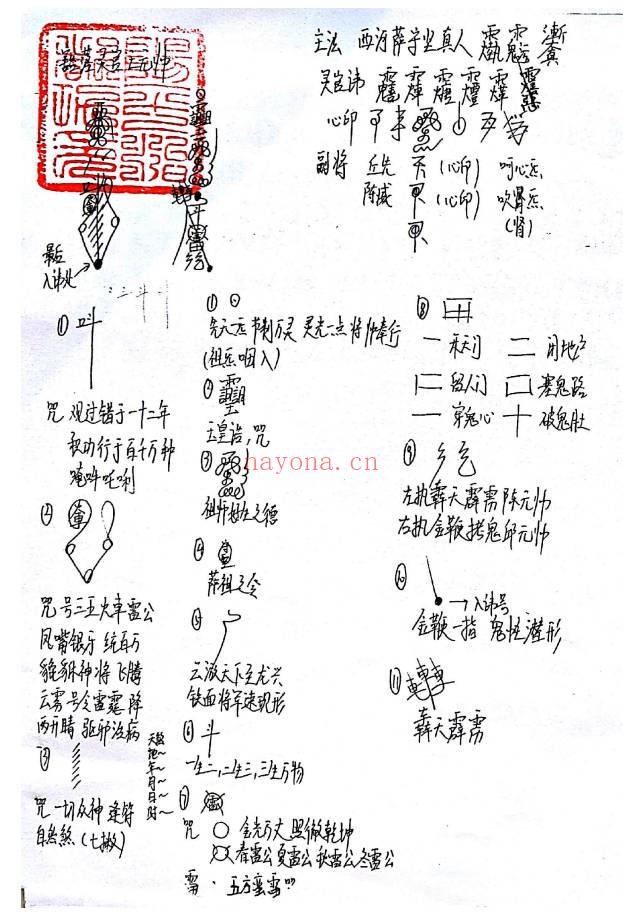 主法 西河萨守坚真人
灵官讳
心印
副将 丘先 (心印) 呵心炁
陈威 (心印) 吹肾炁
(肾)
最后
入讳处
① 叫
咒 观过错于一十二年
积功行于百千万种
唵吽吒唎
②
咒 号三五火车雷公
凤嘴银牙 统百万
貔貅神将 飞腾
云雾 号令雷霆 降
雨开晴 驱邪治病
③
咒 一切众神 逢符
自息煞 (七撇)
天~
地~
年~
月~
日~
时~
① ⊙
先天炁 节制万灵 灵光一点 将帅奉行
(祖炁咽入)
②
玉皇诰,咒
③
④
萨祖之令
⑤
云游天下至龙兴
铁面将军速现形
⑥ 斗
一生二,二生三,三生万物
⑦
咒 ○ 金光万丈 照彻乾坤
春雷公夏雷公秋雷公冬雷公
雷 · 五方蛮雷
⑧
一 天门 二 闭地户
留人门 塞鬼路
一 穿鬼心 十 破鬼肚
⑨
左执轰天霹雳陈元帅
右执金鞭拷鬼邱元帅
⑩ →入讳号
金鞭一指 鬼怪潜形
⑪
轰天霹雳
hayona.cn